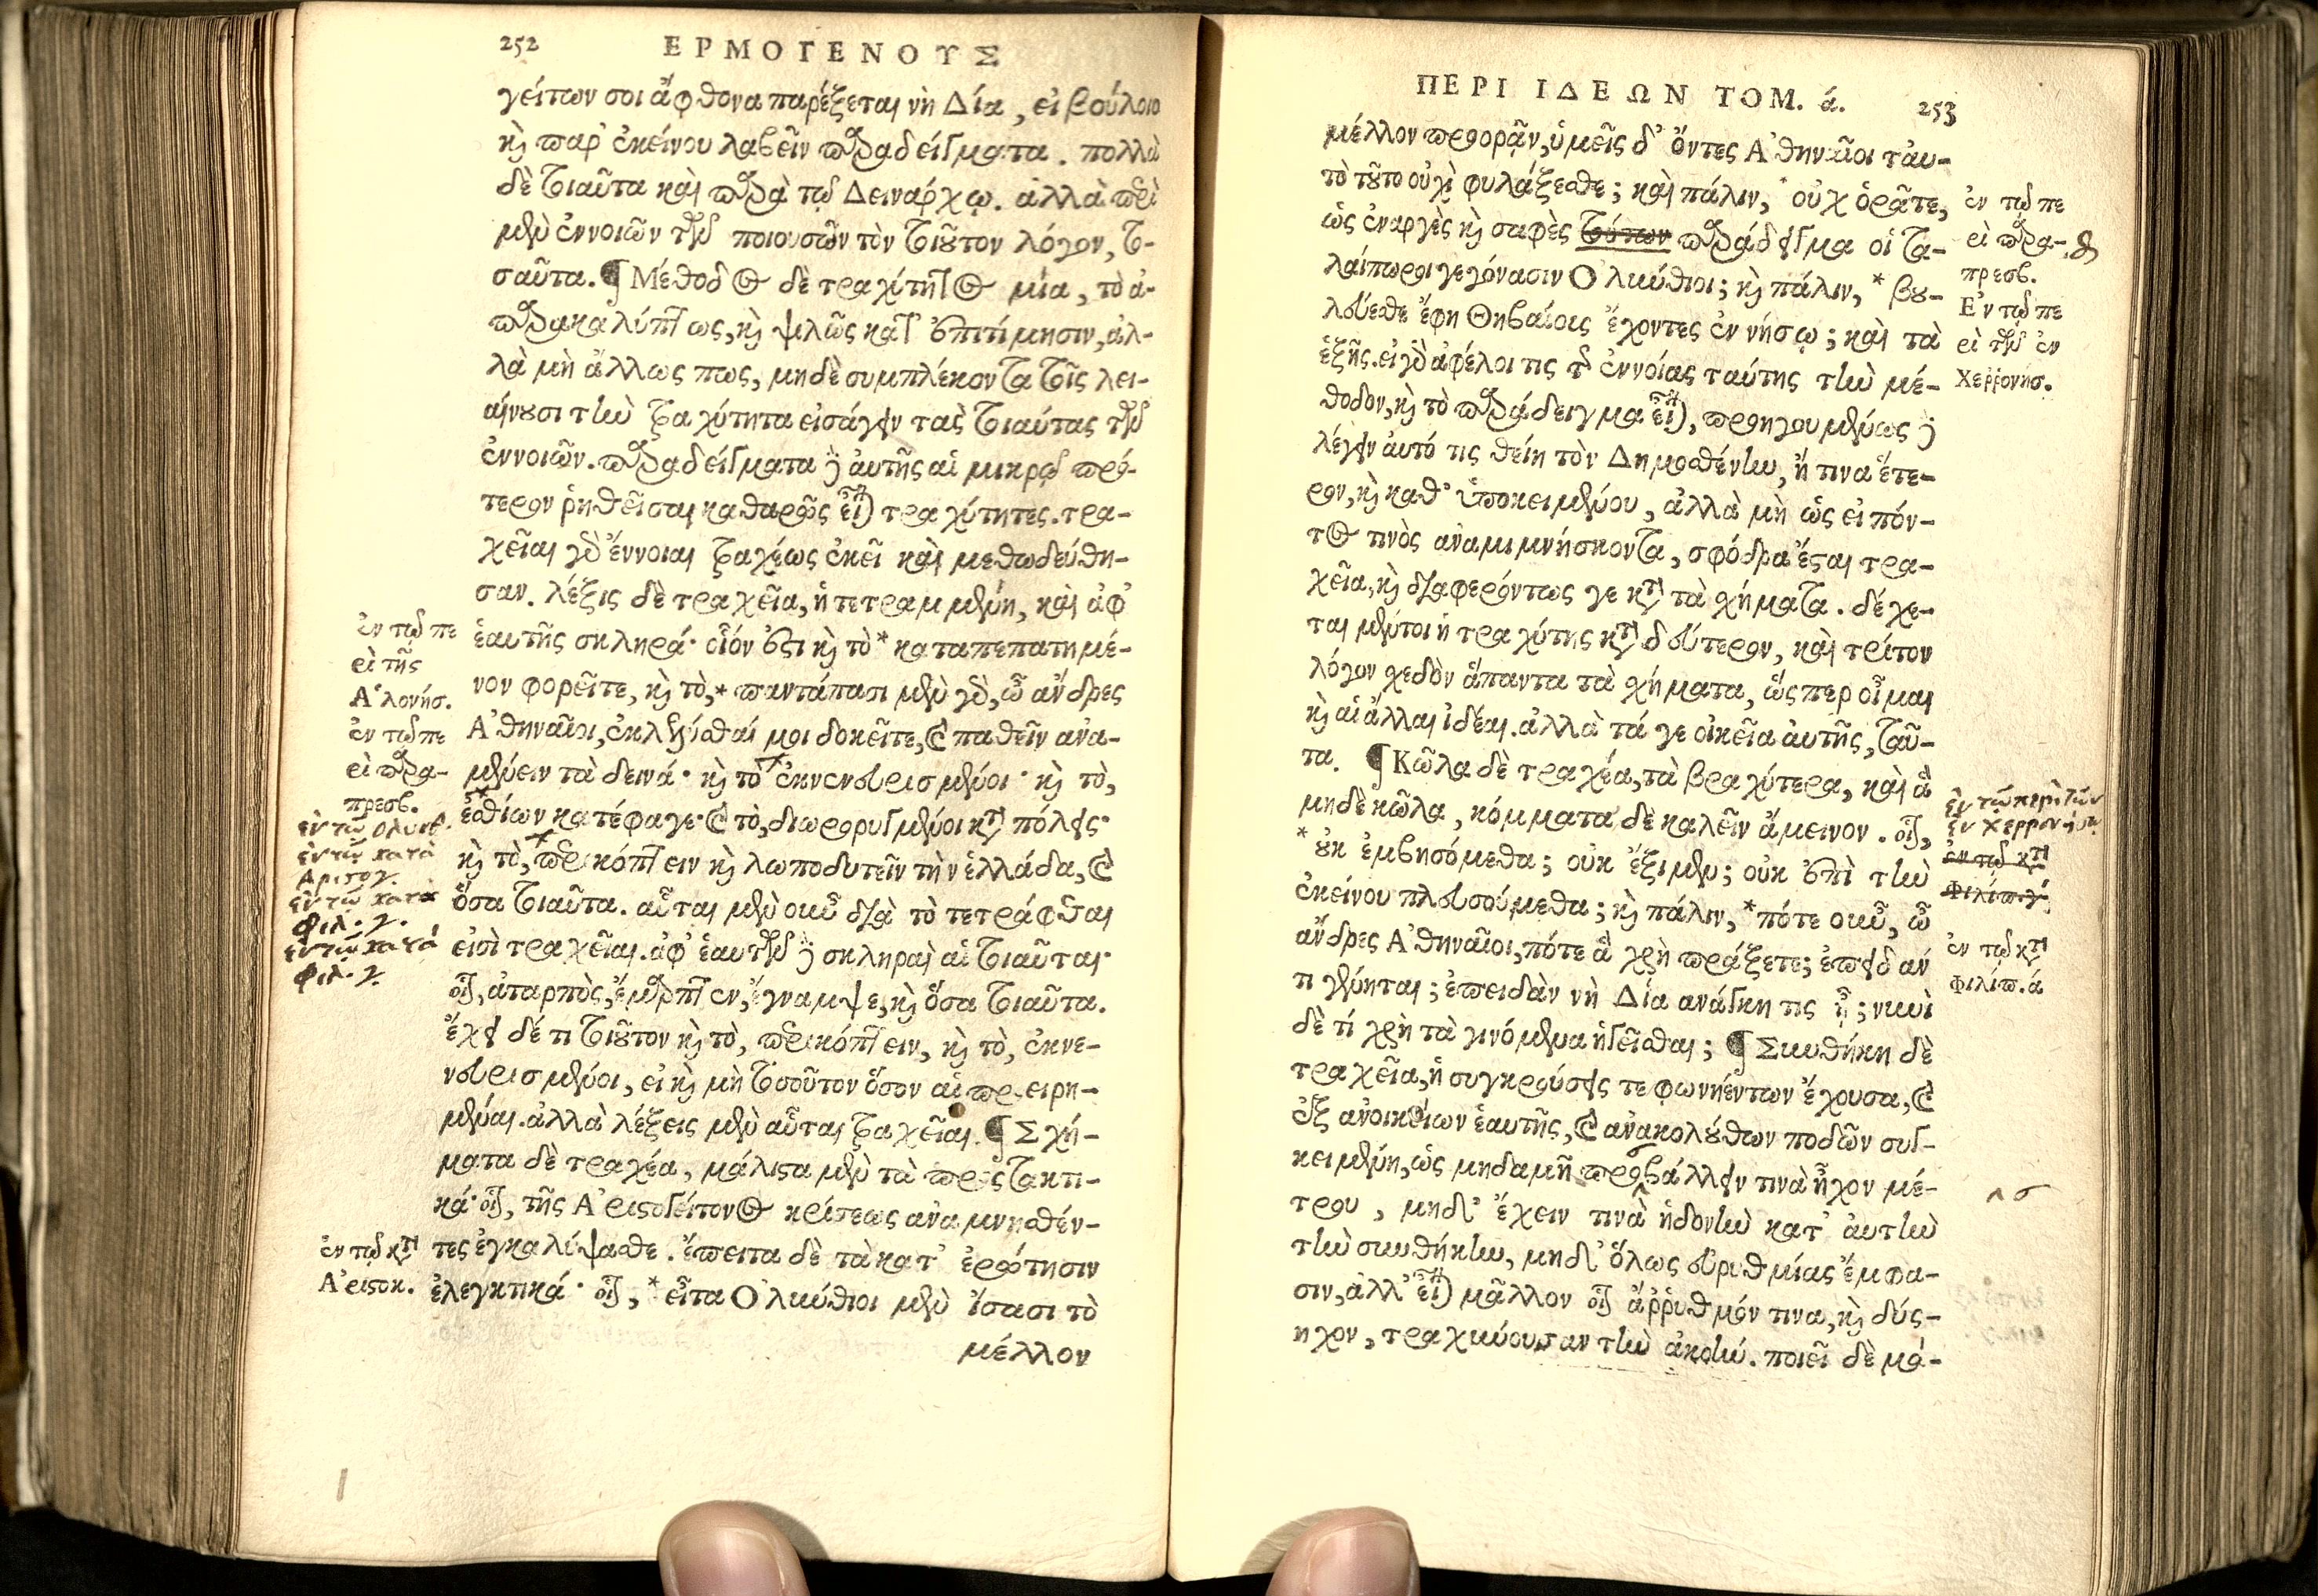 252 ΕΡΜΟΓΕΝΟΥΣ
γείτων σοι ἄφθονα παρέξεται νὴ Δία, εἰ βούλοιο
καὶ παρ' ἐκείνου λαβεῖν παραδείγματα. πολλὰ
δὲ τοιαῦτα καὶ παρὰ τῷ Δεινάρχῳ. ἀλλὰ περὶ
μὲν ἐννοιῶν τῶν ποιουσῶν τὸν τοιοῦτον λόγον, το-
σαῦτα. ¶ Μέθοδος δὲ τραχύτητος μία, τὸ ἀ-
παρακαλύπτως, καὶ ψιλῶς κατ' ἐπιτίμησιν, ἀλ-
λὰ μὴ ἄλλως πως, μηδὲ συμπλέκοντα τοῖς λει-
αίνουσι τὴν τραχύτητα εἰσάγειν τὰς τοιαύτας τῶν
ἐννοιῶν. παραδείγματα δὲ αὐτῆς αἱ μικρῷ πρό-
τερον ῥηθεῖσαι καθαρῶς εἶναι τραχύτητες. τρα-
χεῖαι γὰρ ἔννοιαι τραχέως ἐκεῖ καὶ μεθωδεύθη-
σαν. λέξις δὲ τραχεῖα, ἥ τε τραμμένη, καὶ ἀφ'
ἑαυτῆς σκληρά· οἷόν ἐστι καὶ τὸ * καταπεπατημέ-
νον φορεῖτε, καὶ τὸ, * παντάπασι μὲν γὰρ, ὦ ἄνδρες
Ἀθηναῖοι, ἐκλελύσθαί μοι δοκεῖτε, καὶ παθεῖν ἀνα-
μένειν τὰ δεινά· καὶ τὸ ἐκνενευρισμένοι· καὶ τὸ,
ἐσθίων κατέφαγε· καὶ τὸ, διωρορυγμένοι κατὰ πόλεις·
καὶ τὸ, περικόπτειν καὶ λωποδυτεῖν τὴν ἑλλάδα, καὶ
ὅσα τοιαῦτα. αὗται μὲν οὖν διὰ τὸ τετράφθαι
εἰσὶ τραχεῖαι. ἀφ' ἑαυτῶν δὲ σκληραὶ αἱ τοιαῦται·
οἷον, ἀταρπὸς, ἔμαρπτεν, ἔγναμψε, καὶ ὅσα τοιαῦτα.
ἔχει δέ τι τοιοῦτον καὶ τὸ, περικόπτειν, καὶ τὸ, ἐκνε-
νευρισμένοι, εἰ καὶ μὴ τοσοῦτον ὅσον αἱ προειρη-
μέναι. ἀλλὰ λέξεις μὲν αὗται τραχεῖαι. ¶ Σχή-
ματα δὲ τραχέα, μάλιστα μὲν τὰ προστακτι-
κά· οἷον, τῆς Ἀριστογείτονος κρίσεως ἀναμνησθέν-
τες ἐγκαλύψασθε. ἔπειτα δὲ τὰ κατ' ἐρώτησιν
ἐλεγκτικά· οἷον, * εἶτα Ὀλύνθιοι μὲν ἴσασι τὸ
μέλλον
ἐν τῷ πε
ρὶ τῆς
Ἁλονήσ.
ἐν τῷ πε
ρὶ παρα-
πρεσβ.
ἐν τῷ ὀλυνθ.
ἐν τῷ κατὰ
Αριστογ.
ἐν τῷ κατὰ
Φιλ. γ.
ἐν τῷ κατὰ
Φιλ. γ.
ἐν τῷ κατὰ
Ἀριστοκ.
ΠΕΡΙ ΙΔΕΩΝ ΤΟΜ. ά. 253
μέλλον προορᾷν, ὑμεῖς δ' ὄντες Ἀθηναῖοι ταυ-
τὸ τοῦτο οὐχὶ φυλάξεσθε; καὶ πάλιν, * οὐχ ὁρᾶτε,
ὡς ἐναργὲς καὶ σαφὲς τούτων παράδειγμα οἱ τα-
λαίπωροι γεγόνασιν Ὀλύνθιοι; καὶ πάλιν, * βου-
λεύεσθε ἔφη Θηβαίοις ἔχοντες ἐν νήσῳ; καὶ τὰ
ἑξῆς. εἰ γὰρ ἀφέλοι τις τῆς ἐννοίας ταύτης τὴν μέ-
θοδον, καὶ τὸ παράδειγμα εἶναι, προηγουμένως δὲ
λέγειν αὐτό τις θείη τὸν Δημοσθένην, ἤ τινα ἕτε-
ρον, καὶ καθ' ὑποκειμένου, ἀλλὰ μὴ ὡς εἰπόν-
τος τινὸς ἀναμιμνήσκοντα, σφόδρα ἔσται τρα-
χεῖα, καὶ διαφερόντως γε κατὰ τὰ σχήματα. δέχε-
ται μέντοι ἡ τραχύτης κατὰ δεύτερον, καὶ τρίτον
λόγον σχεδὸν ἅπαντα τὰ σχήματα, ὥσπερ οἶμαι
καὶ αἱ ἄλλαι ἰδέαι. ἀλλὰ τά γε οἰκεῖα αὐτῆς, ταῦ-
τα. ¶ Κῶλα δὲ τραχέα, τὰ βραχύτερα, καὶ ἃ
μηδὲ κῶλα, κόμματα δὲ καλεῖν ἄμεινον. οἷον,
* οὐκ ἐμβησόμεθα; οὐκ ἔξιμεν; οὐκ ἐπὶ τὴν
ἐκείνου πλευσούμεθα; καὶ πάλιν, * πότε οὖν, ὦ
ἄνδρες Ἀθηναῖοι, πότε ἃ χρὴ πράξετε; ἐπειδάν
τι γένηται; ἐπειδὰν νὴ Δία ἀνάγκη τις ᾖ; νυνὶ
δὲ τί χρὴ τὰ γινόμενα ἡγεῖσθαι; ¶ Συνθήκη δὲ
τραχεῖα, ἡ συγκρούσεις τε φωνηέντων ἔχουσα, καὶ
ἐξ ἀνοικείων ἑαυτῆς, καὶ ἀνακολούθων ποδῶν συγ-
κειμένη, ὡς μηδαμῆ προβάλλειν τινὰ ἦχον μέ-
τρου, μηδ' ἔχειν τινὰ ἡδονὴν κατ' αὐτὴν
τὴν συνθήκην, μηδ' ὅλως εὐρυθμίας ἔμφα-
σιν, ἀλλ' εἶναι μᾶλλον οἷον ἄῤῥυθμόν τινα, καὶ δύσ-
ηχον, τραχύνουσαν τὴν ἀκοήν. ποιεῖ δὲ μά-
ἐν τῷ πε
ρὶ παρα-
πρεσβ.
Ἐν τῷ πε
ρὶ τῶν ἐν
Χεῤῥονήσ.
ἐν τῷ περὶ τῶν
ἐν Χερρονήσῳ
ἐν τῷ κατὰ
Φιλίπ. γ.
ἐν τῷ κατὰ
Φιλίπ. ά
^ σ